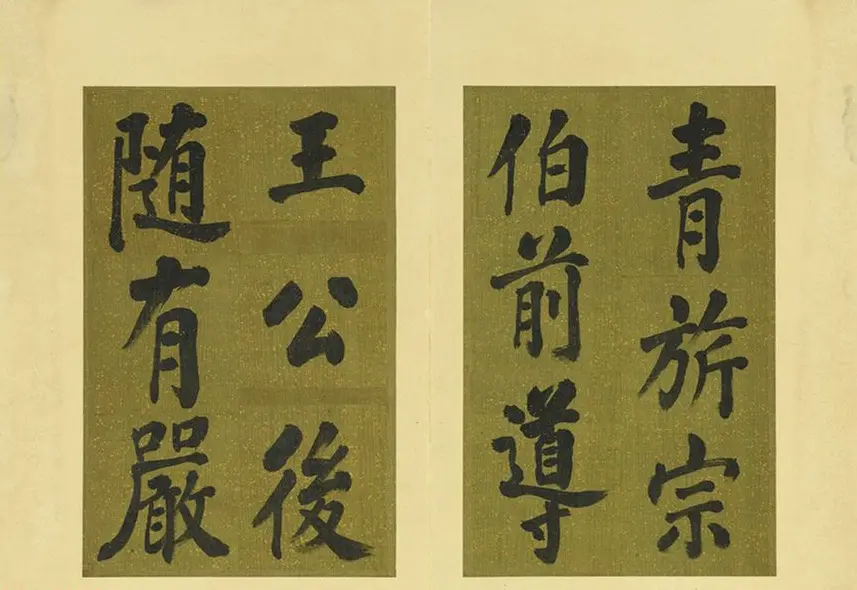 青旂宗
伯前導
王公後
随有嚴